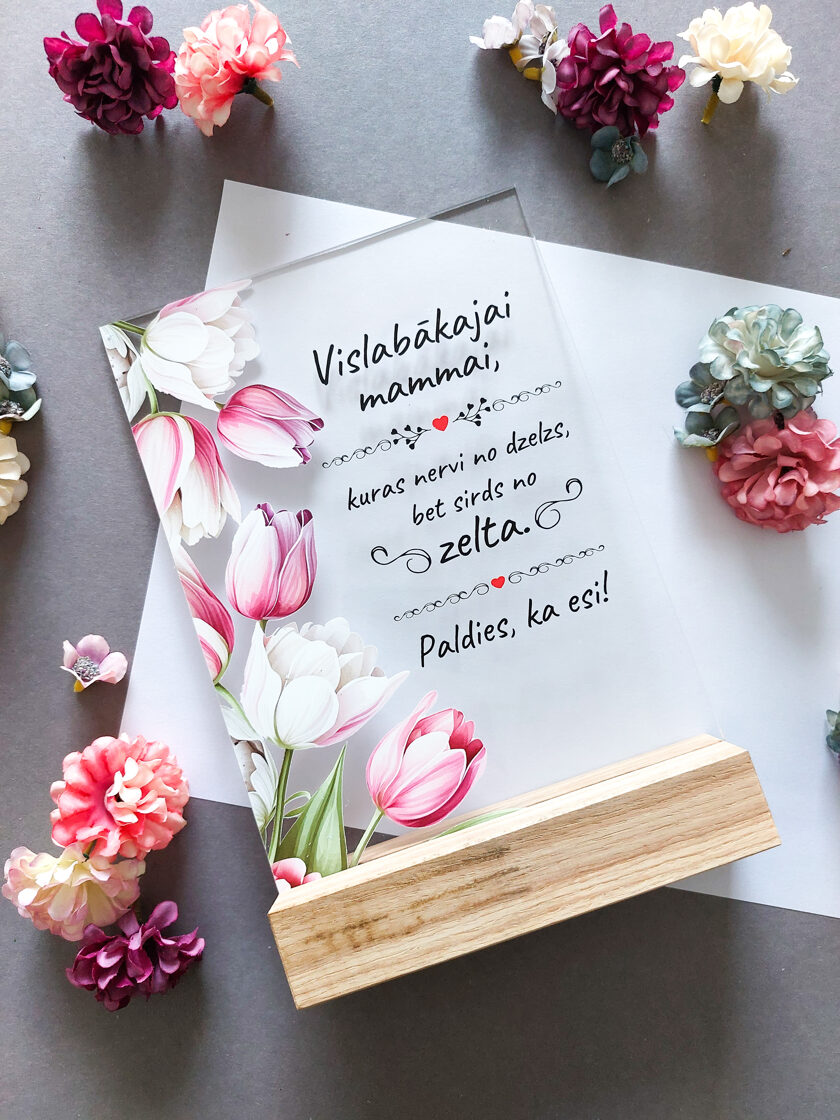 Vislabākajai
mammai,
kuras nervi no dzelzs,
bet sirds no
zelta.
Paldies, ka esi!